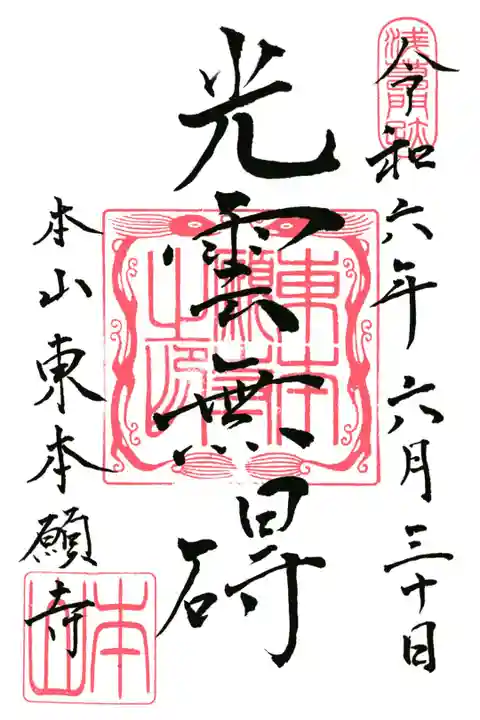 令和六年六月三十日
光雲無碍
本山東本願寺
浅草門跡
東本願寺之印
本山